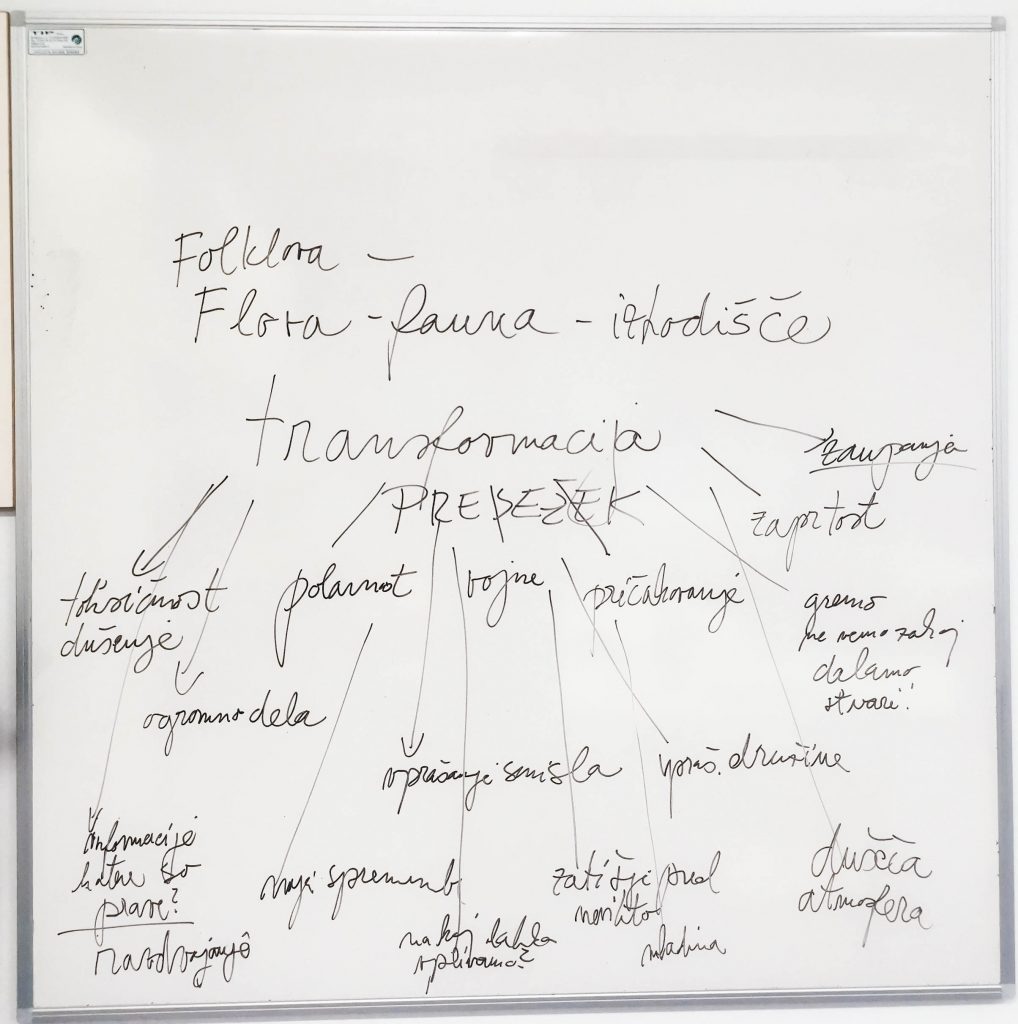 Folklora -
Flora - fauna - izhodišče
transformacija
PRESEŽEK
zaupanja
zaprtost
toksičnost
dušenje
polarnost
vojne
pričakovanje
gremo
ne vemo zakaj
delamo
stvari!
ogromno dela
vprašanje smisla
vpraš. družine
informacije
katere so
prave?
razdvajanje
sprememb
na kaj lahko
vplivamo?
zatišje pred
nevihto
mladina
dušeča
atmosfera